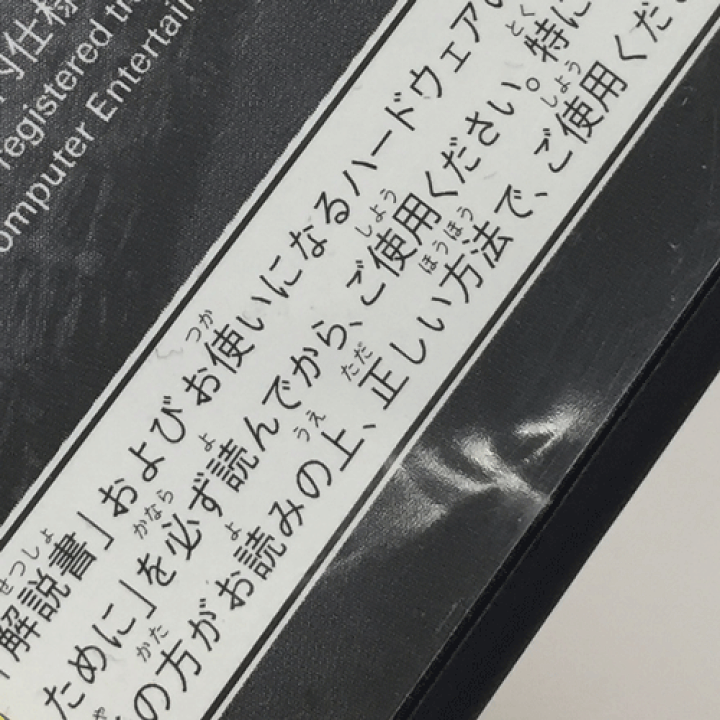 内仕様
registered tr
omputer Entertain
解説書」およびお使いになるハードウェア
ために」を必ず読んでから、ご使用ください。特に
の方がお読みの上、正しい方法で、ご使用くだ